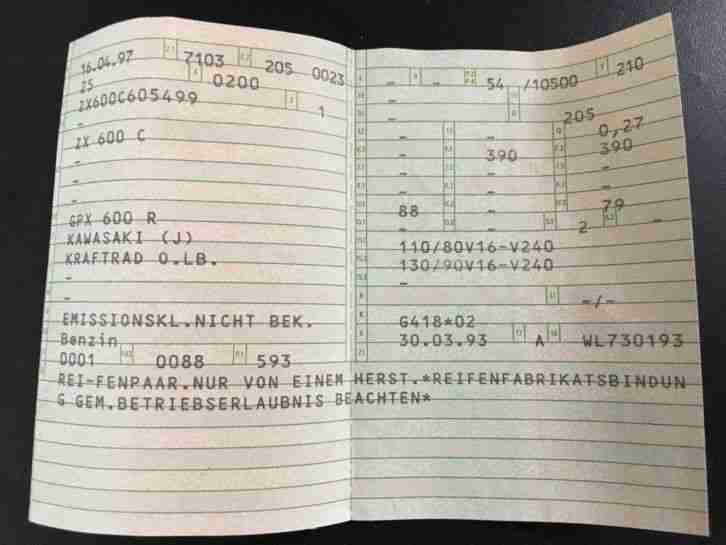 16.04.97 2.1 7103 2.2 205 0023
25 4 0200
ZX600C605499 3 1
-
ZX 600 C
-
-
-
GPX 600 R
KAWASAKI (J)
KRAFTRAD O.LB.
-
-
EMISSIONSKL.NICHT BEK.
Benzin
0001 0088 P.1 593
- - 54 /10500 T 210
-
- 205
- - 0,27
- 390 390
- - -
- - -
88 - 79
- - 2 -
110/80V16-V240
130/90V16-V240
-
-/-
G418*02
30.03.93 A WL730193
REI-FENPAAR.NUR VON EINEM HERST.*REIFENFABRIKATSBINDUN
G GEM.BETRIEBSERLAUBNIS BEACHTEN*